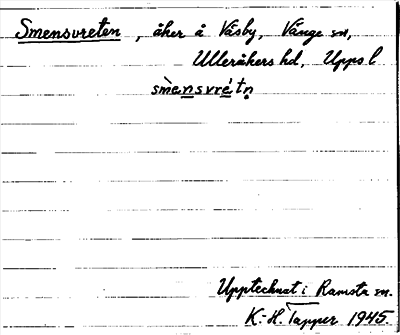 Smensvreten, åker å Väsby, Vänge sn,
Ulleråkers hd, Upps l
smènsvrétn̥
Upptecknat i Ramsta sn.
K.-H. Tapper 1945.